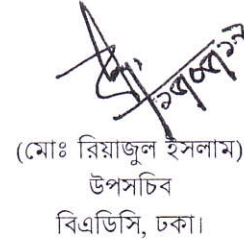 (মোঃ রিয়াজুল ইসলাম)
উপসচিব
বিএডিসি, ঢকা।